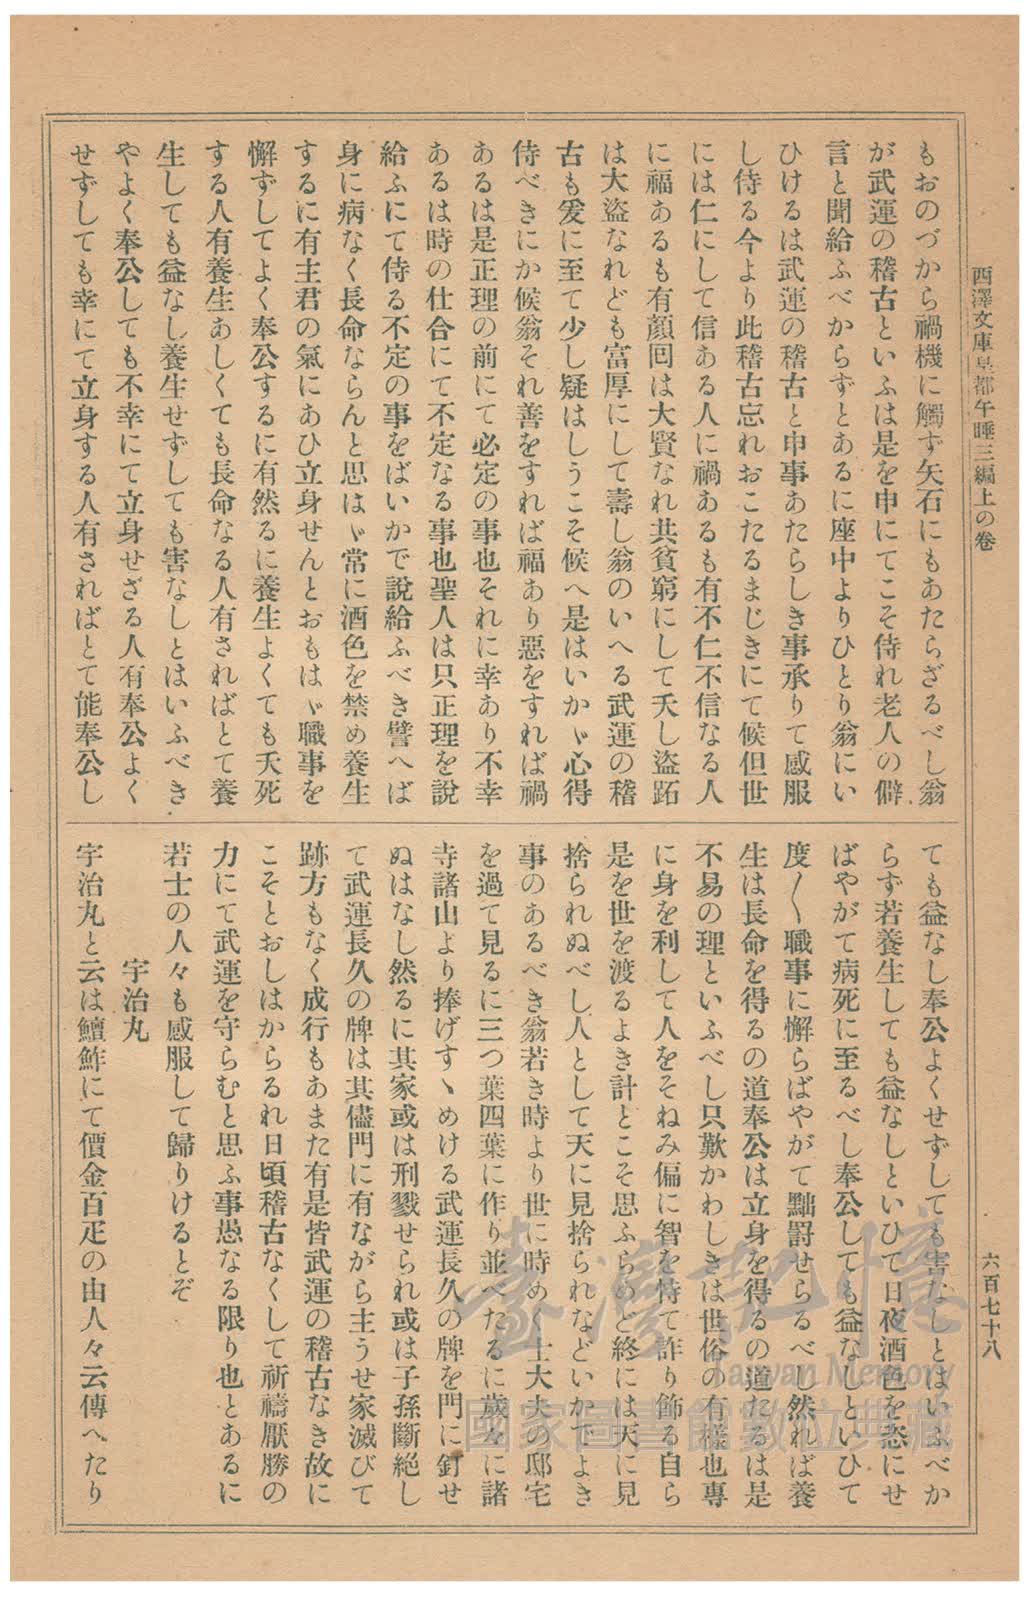 西澤文庫皇都午睡三編上の卷
六百七十八
もおのづから禍機に觸ず矢石にもあたらざるべし翁
が武運の稽古といふは是を申にてこそ侍れ老人の僻
言と聞給ふべからずとあるに座中よりひとり翁にい
ひけるは武運の稽古と申事あたらしき事承りて感服
し侍る今より此稽古忘れおこたるまじきにて候但世
には仁にして信ある人に禍あるも有不仁不信なる人
に福あるも有顔回は大賢なれ共貧窮にして夭し盜跖
は大盜なれども富厚にして壽し翁のいへる武運の稽
古も爰に至て少し疑はしうこそ候へ是はいかゞ心得
侍べきにか候翁それ善をすれば福あり惡をすれば禍
あるは是正理の前にて必定の事也それに幸あり不幸
あるは時の仕合にて不定なる事也聖人は只正理を說
給ふにて侍る不定の事をばいかで說給ふべき譬へば
身に病なく長命ならんと思はゞ常に酒色を禁め養生
するに有主君の氣にあひ立身せんとおもはゞ職事を
懈ずしてよく奉公するに有然るに養生よくても夭死
する人有養生あしくても長命なる人有さればとて養
生しても益なし養生せずしても害なしとはいふべき
やよく奉公しても不幸にて立身せざる人有奉公よく
せずしても幸にて立身する人有さればとて能奉公し
ても益なし奉公よくせずしても害なしとはいふべか
らず若養生しても益なしといひて日夜酒色を恣にせ
ばやがて病死に至るべし奉公しても益なしといひて
度〱職事に懈らばやがて黜罸せらるべし然れば養
生は長命を得るの道奉公は立身を得るの道たるは是
不易の理といふべし只歎かわしきは世俗の有樣也專
に身を利して人をそねみ偏に智を恃て詐り飾る自ら
是を世を渡るよき計とこそ思ふらめど終には天に見
捨られぬべし人として天に見捨られなどいかでよき
事のあるべき翁若き時より世に時めく士大夫の邸宅
を過て見るに三つ葉四葉に作り並べたるに歲々に諸
寺諸山より捧げすゝめける武運長久の牌を門に釘せ
ぬはなし然るに其家或は刑戮せられ或は子孫斷絕し
て武運長久の牌は其儘門に有ながら主うせ家滅びて
跡方もなく成行もあまた有是皆武運の稽古なき故に
こそとおしはからるれ日頃稽古なくして祈禱厭勝の
力にて武運を守らむと思ふ事愚なる限り也とあるに
若士の人々も感服して歸りけるとぞ
宇治丸
宇治丸と云は鱣鮓にて價金百疋の由人々云傳へたり
臺灣記憶
Taiwan Memory
國家圖書館數位典藏